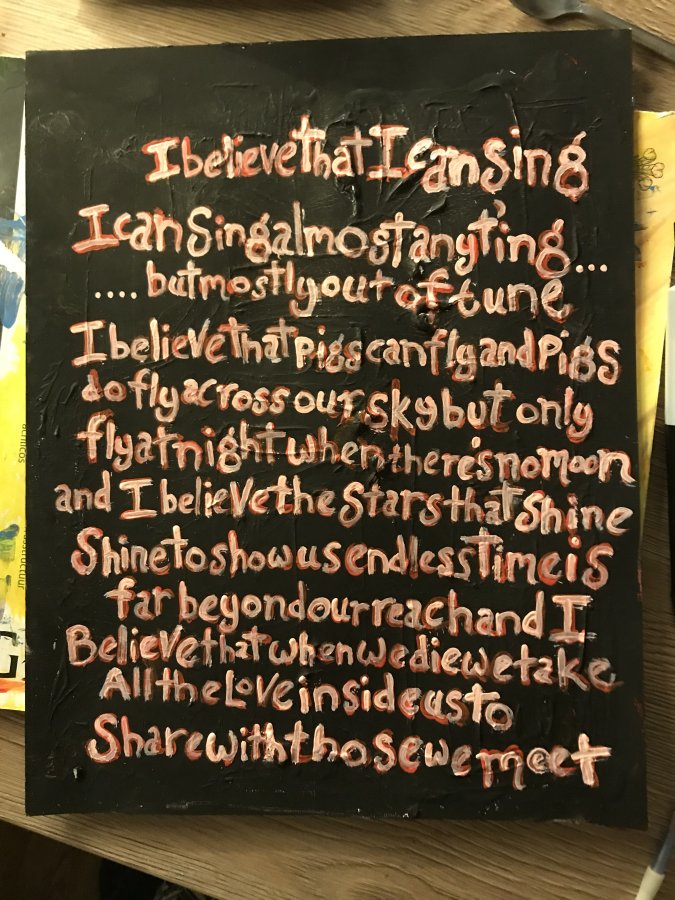 I believe that I can sing
I can Sing almost anyt'ing...
....but mostly out of tune
I believe that pigs can fly and pigs
do fly across our sky but only
fly at night when there's no moon
and I believe the stars that shine
Shine to show us endless Time is
far beyond our reach and I
Believe that when we die we take
All the Love inside us to
Share with those we meet